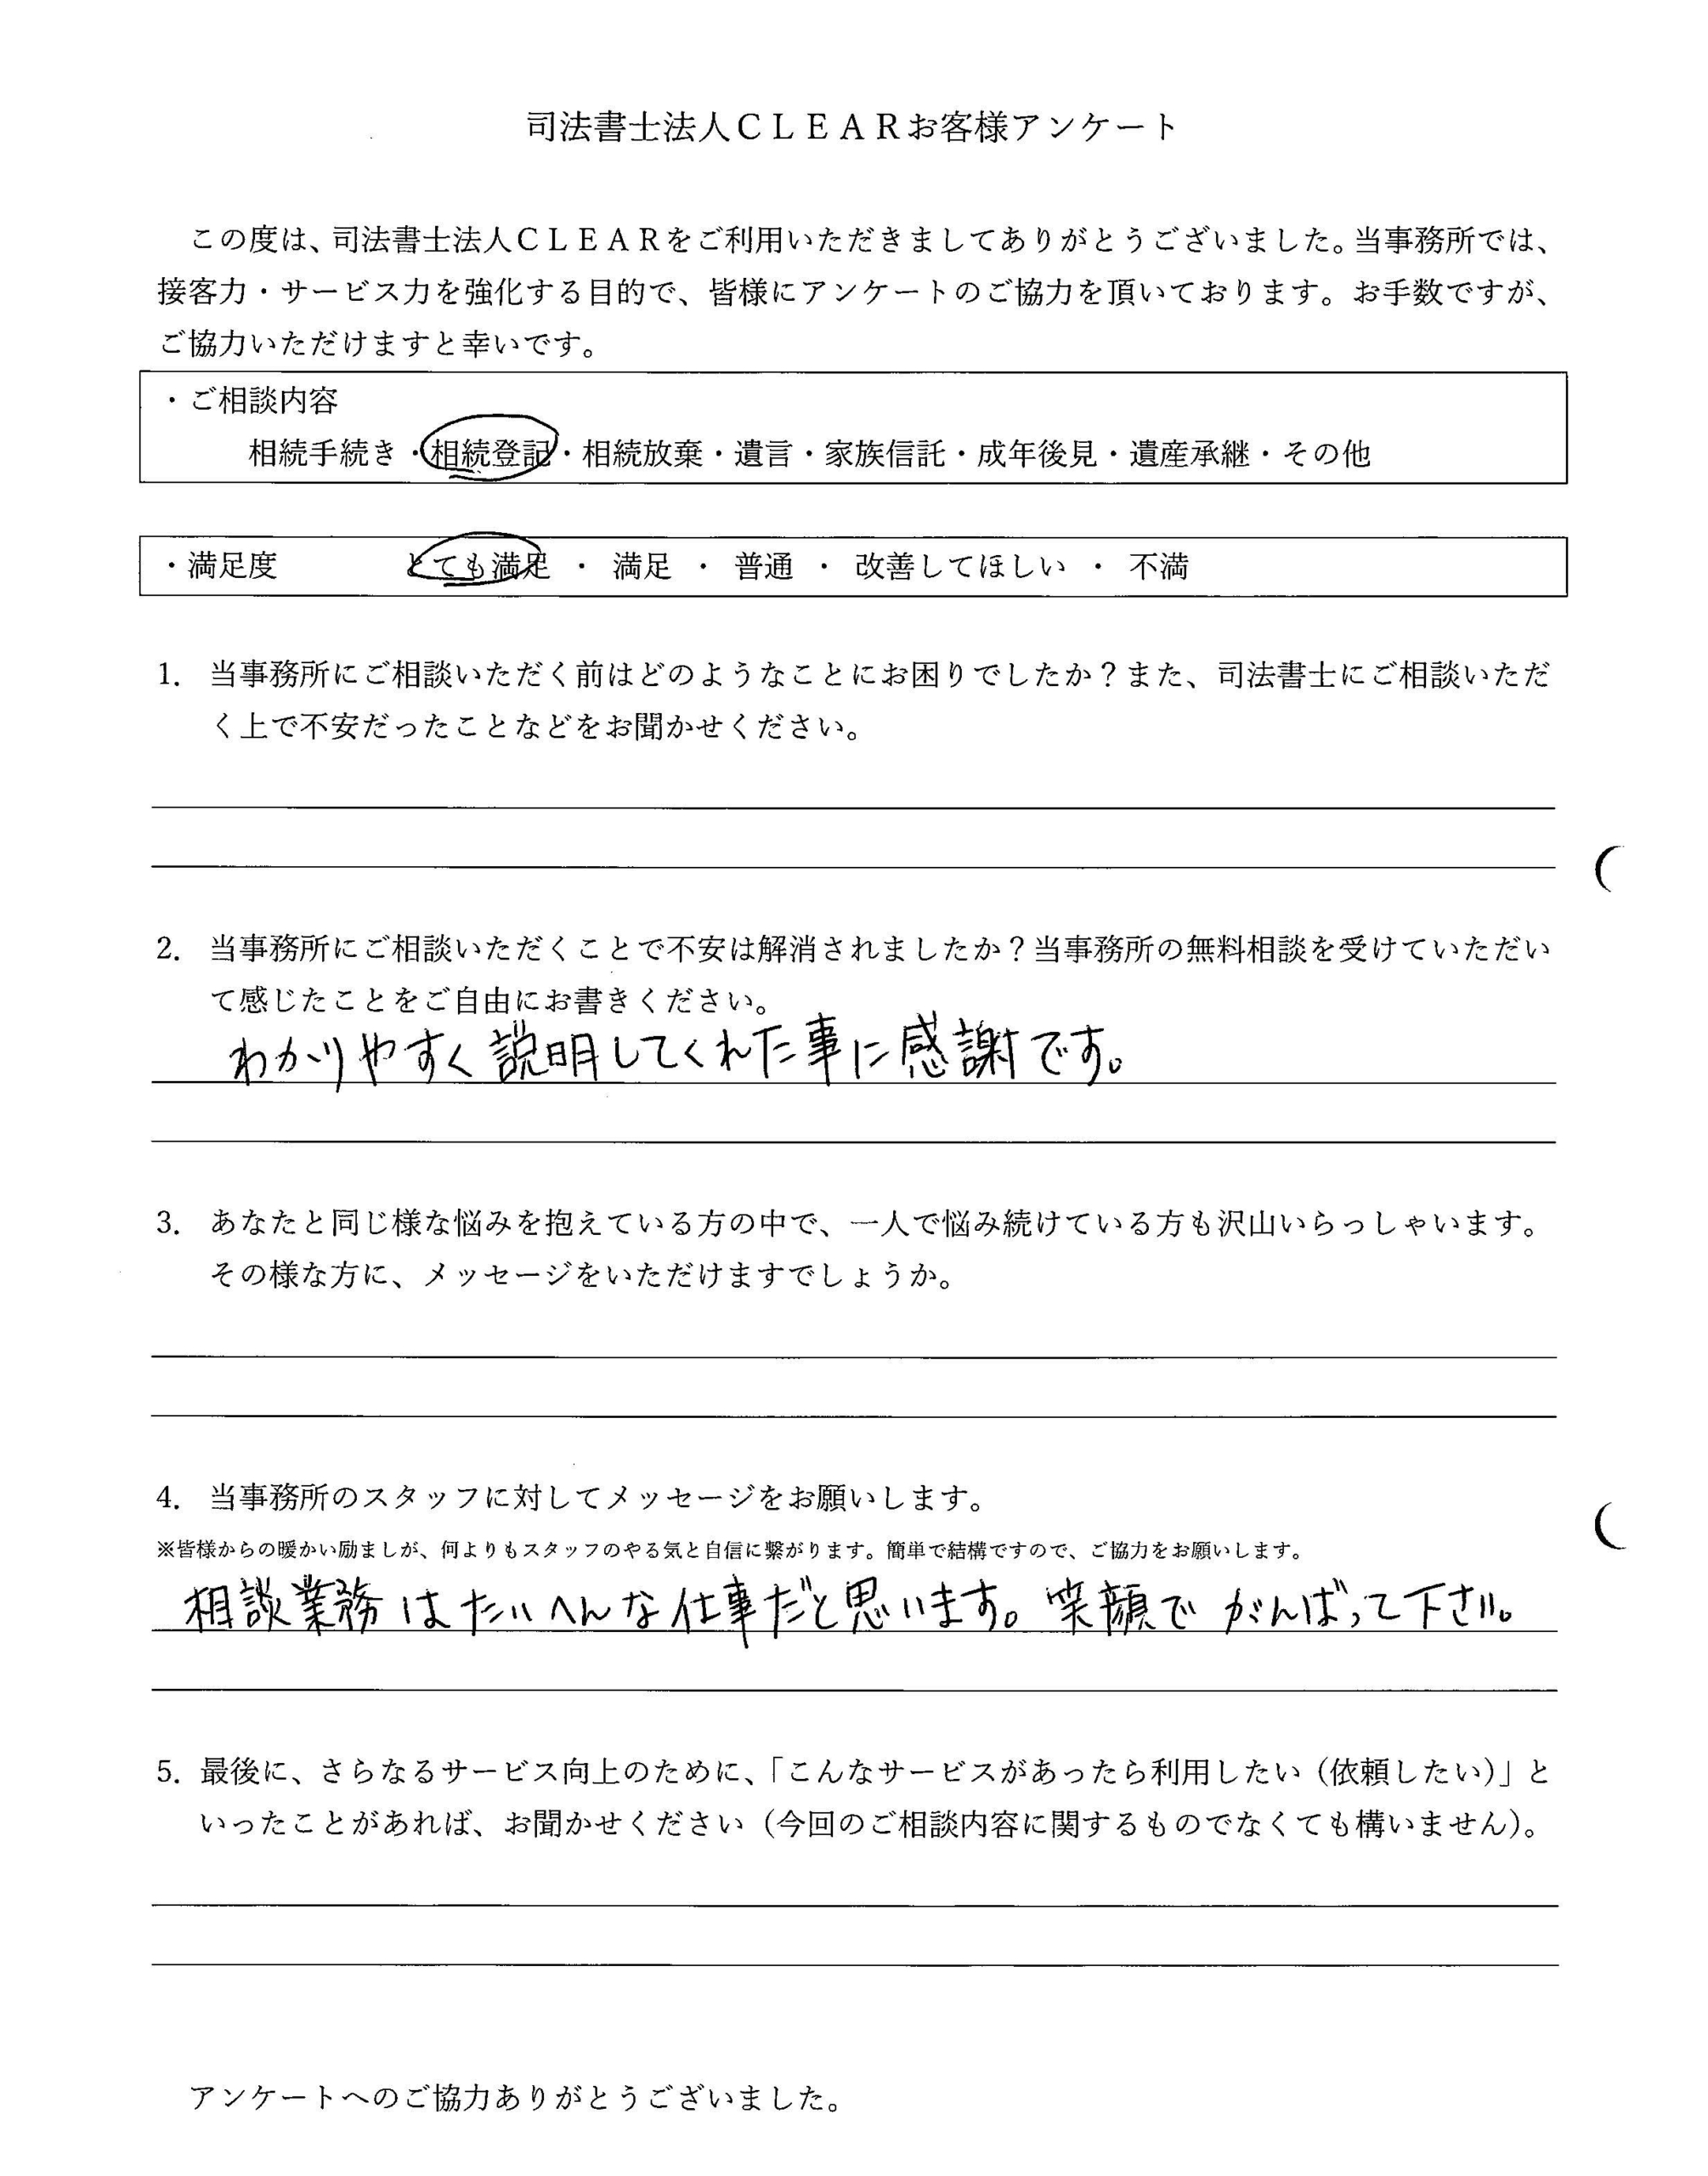 司法書士法人ＣＬＥＡＲお客様アンケート
この度は、司法書士法人ＣＬＥＡＲをご利用いただきましてありがとうございました。当事務所では、
接客力・サービス力を強化する目的で、皆様にアンケートのご協力を頂いております。お手数ですが、
ご協力いただけますと幸いです。
・ご相談内容
相続手続き・相続登記・相続放棄・遺言・家族信託・成年後見・遺産承継・その他
・満足度　とても満足 ・ 満足 ・ 普通 ・ 改善してほしい ・ 不満
1. 当事務所にご相談いただく前はどのようなことにお困りでしたか？また、司法書士にご相談いただ
く上で不安だったことなどをお聞かせください。
2. 当事務所にご相談いただくことで不安は解消されましたか？当事務所の無料相談を受けていただい
て感じたことをご自由にお書きください。
わかりやすく説明してくれた事に感謝です。
3. あなたと同じ様な悩みを抱えている方の中で、一人で悩み続けている方も沢山いらっしゃいます。
その様な方に、メッセージをいただけますでしょうか。
4. 当事務所のスタッフに対してメッセージをお願いします。
※皆様からの暖かい励ましが、何よりもスタッフのやる気と自信に繋がります。簡単で結構ですので、ご協力をお願いします。
相談業務はたいへんな仕事だと思います。笑顔でがんばって下さい。
5. 最後に、さらなるサービス向上のために、「こんなサービスがあったら利用したい（依頼したい）」と
いったことがあれば、お聞かせください（今回のご相談内容に関するものでなくても構いません）。
アンケートへのご協力ありがとうございました。